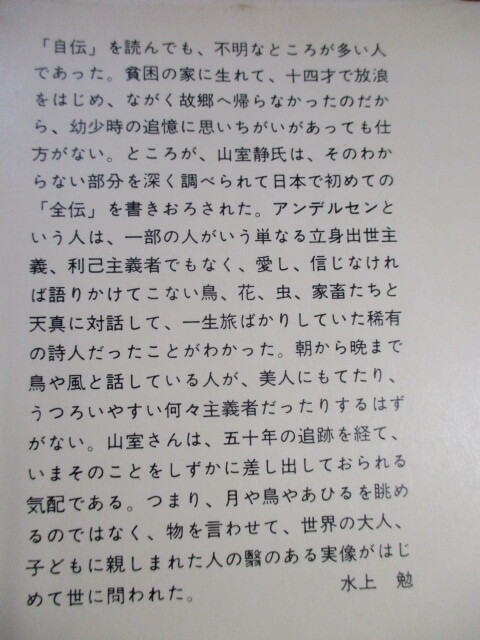 「自伝」を読んでも、不明なところが多い人
であった。貧困の家に生れて、十四才で放浪
をはじめ、ながく故郷へ帰らなかったのだか
ら、幼少時の追憶に思いちがいがあっても仕
方がない。ところが、山室静氏は、そのわか
らない部分を深く調べられて日本で初めての
「全伝」を書きおろされた。アンデルセンと
いう人は、一部の人がいう単なる立身出世主
義、利己主義者でもなく、愛し、信じなけれ
ば語りかけてこない鳥、花、虫、家畜たちと
天真に対話して、一生旅ばかりしていた稀有
の詩人だったことがわかった。朝から晩まで
鳥や風と話している人が、美人にもてたり、
うつろいやすい何々主義者だったりするはず
がない。山室さんは、五十年の追跡を経て、
いまそのことをしずかに差し出しておられる
気配である。つまり、月や鳥やあひるを眺め
るのではなく、物を言わせて、世界の大人、
子どもに親しまれた人の翳のある実像がはじ
めて世に問われた。 水上 勉